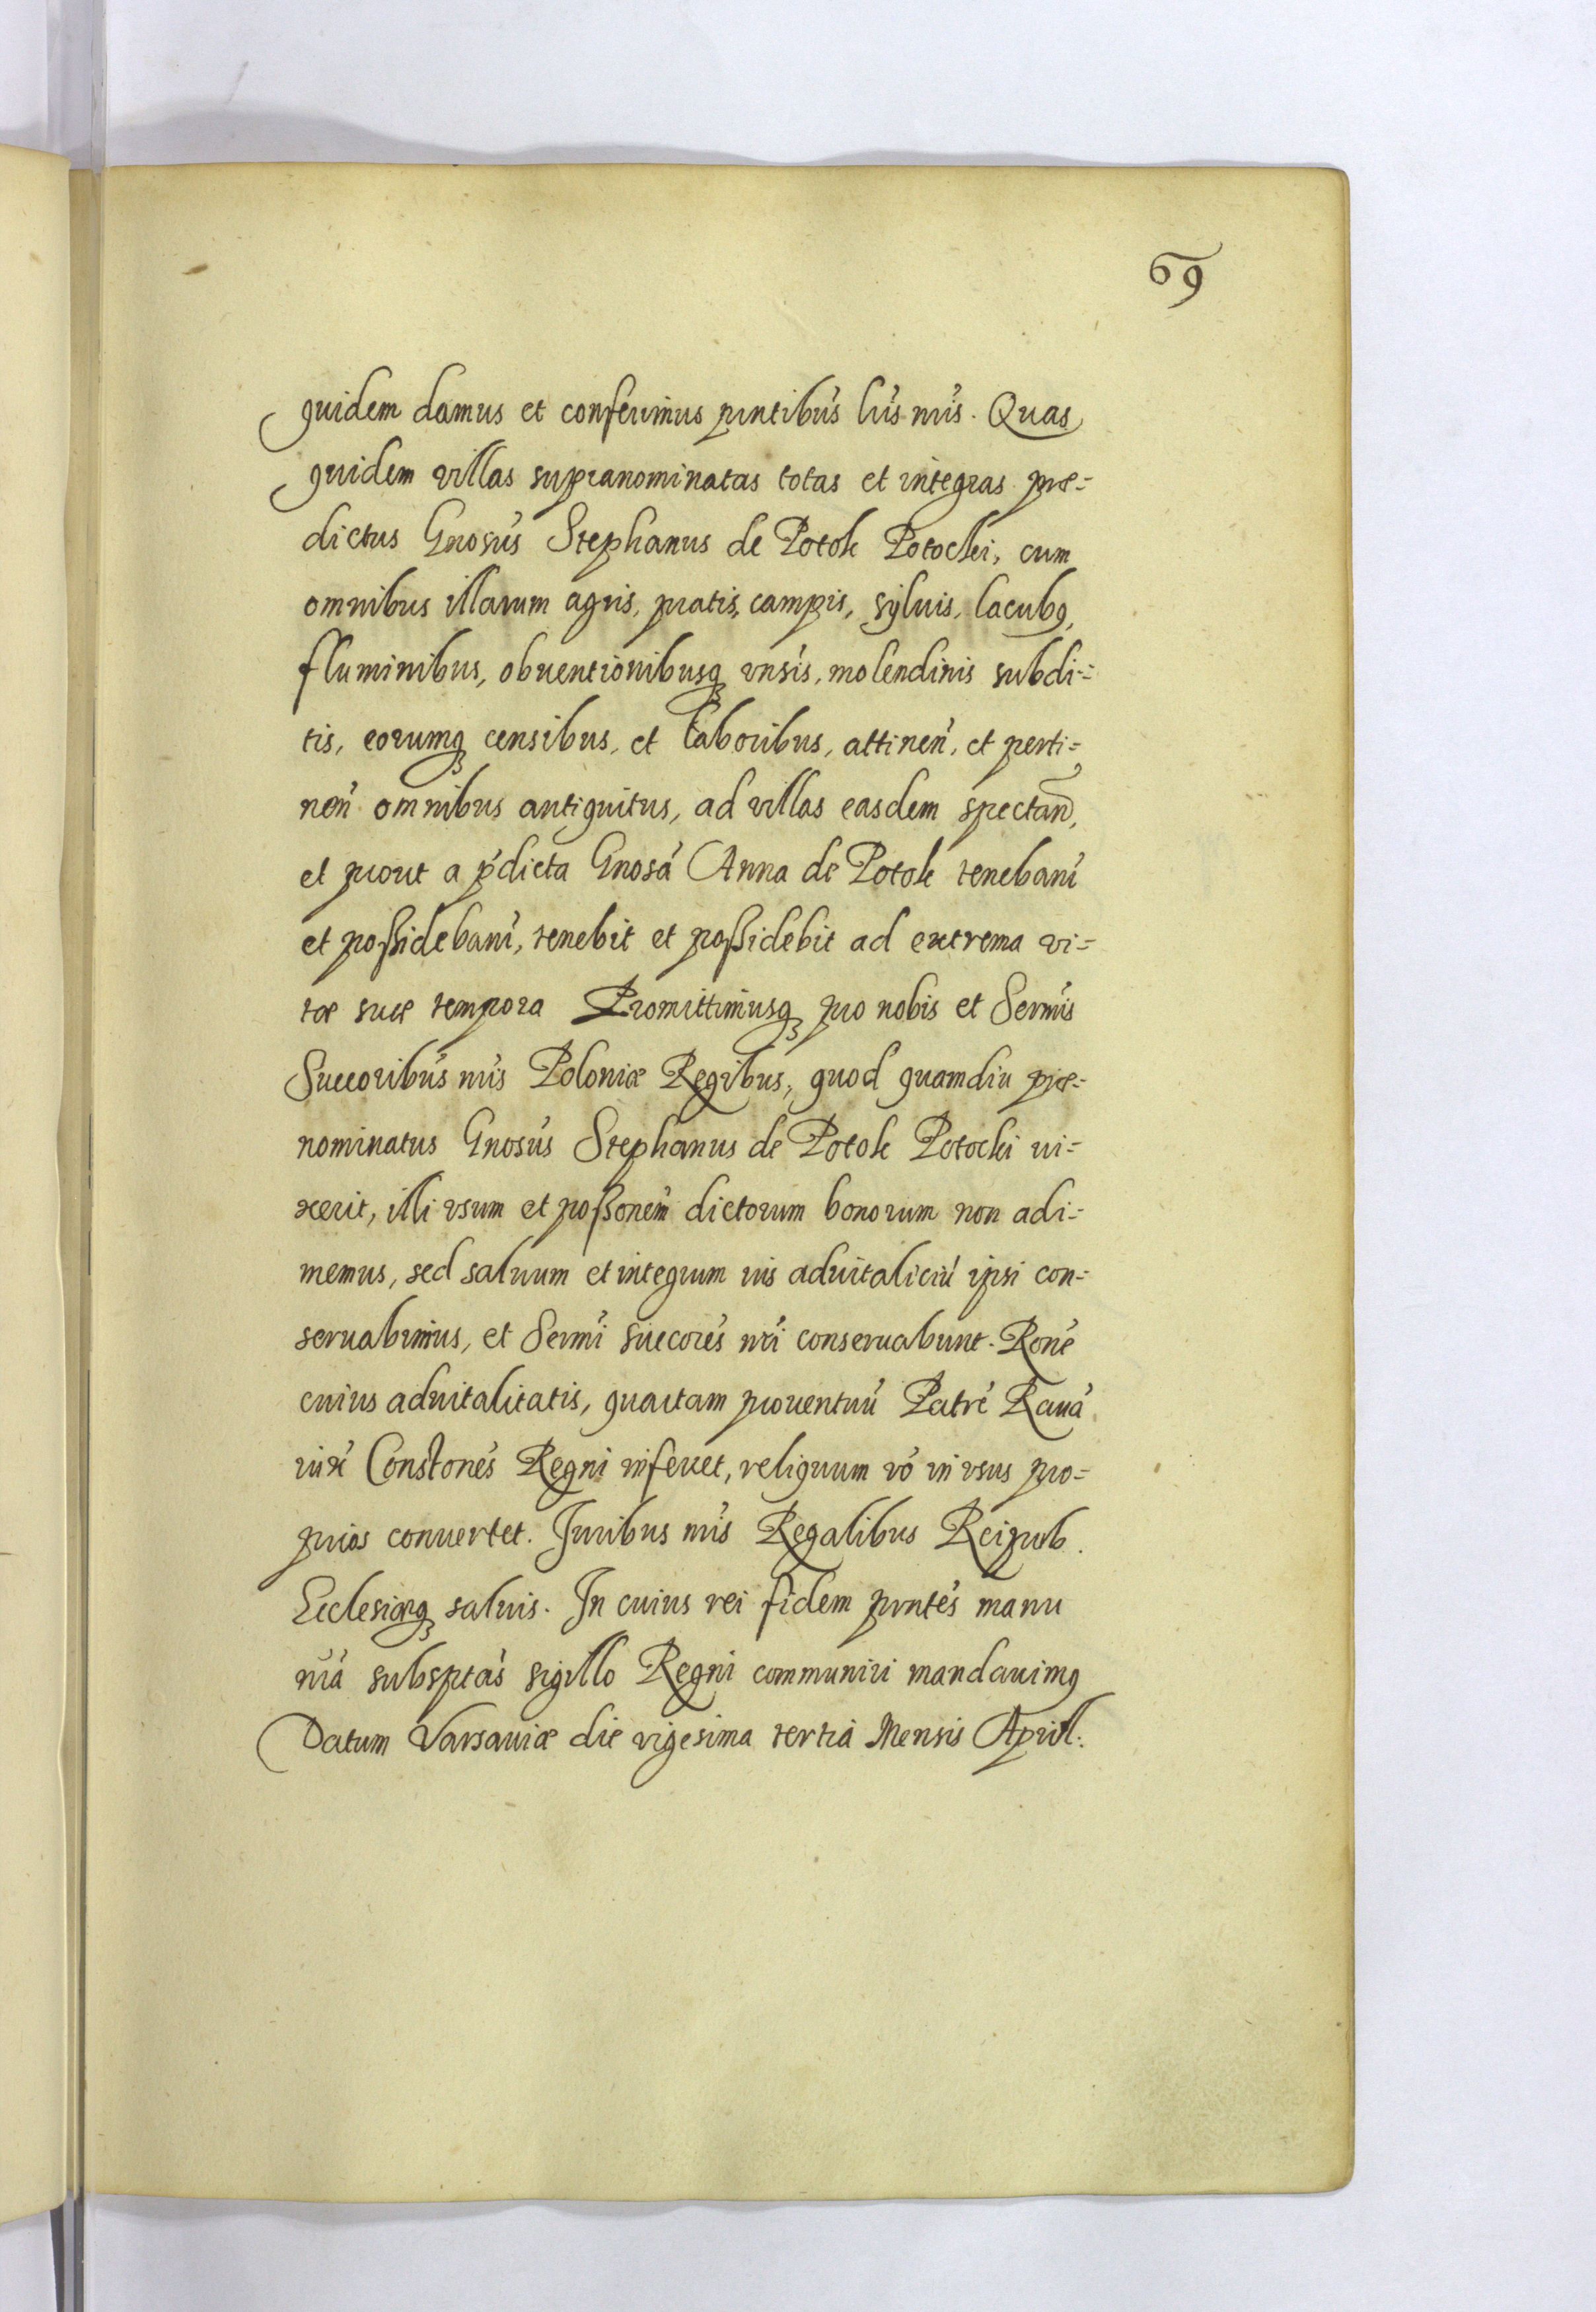 69
quidem damus et conferimus pntibus lris nris. Quas
quidem villas supranominatas totas et integras præ=
dictus Gnosus Stephanus de Potok Potocki, cum
omnibus illarum agris, pratis, campis, syluis, lacubꝯ,
fluminibus, obuentionibusq vnsis, molendinis subdi=
tis, eorumq censibus, et laboribus, attinen, et perti=
nen omnibus antiquitus, ad villas easdem spectan,
et prout a pdicta Gnosa Anna de Potok tenebanr
et poßidebanr, tenebit et poßidebit ad extrema vi=
tæ suæ tempora Promittimusq pro nobis et Sermis
Succoribus nris Poloniæ Regibus, quod quamdiu præ=
nominatus Gnosus Stephanus de Potok Potocki vi=
xerit, illi vsum et poßonem dictorum bonorum non adi=
memus, sed saluum et integrum ius aduitaliciu ipsi con=
seruabimus, et Sermi succores nri conseruabunt. Rone
cuius aduitalitatis, quartam prouentuu Patri Raua
iux Constones Regni inferet, reliquum vo in vsus pro=
prios conuertet. Juribus nris Regalibus Reipub.
Ecclesiæq saluis. In cuius rei fidem pntes manu
nra subsptas sigillo Regni communiri mandauimꝯ
Datum Varsauiæ die vigesima tertia Mensis April.